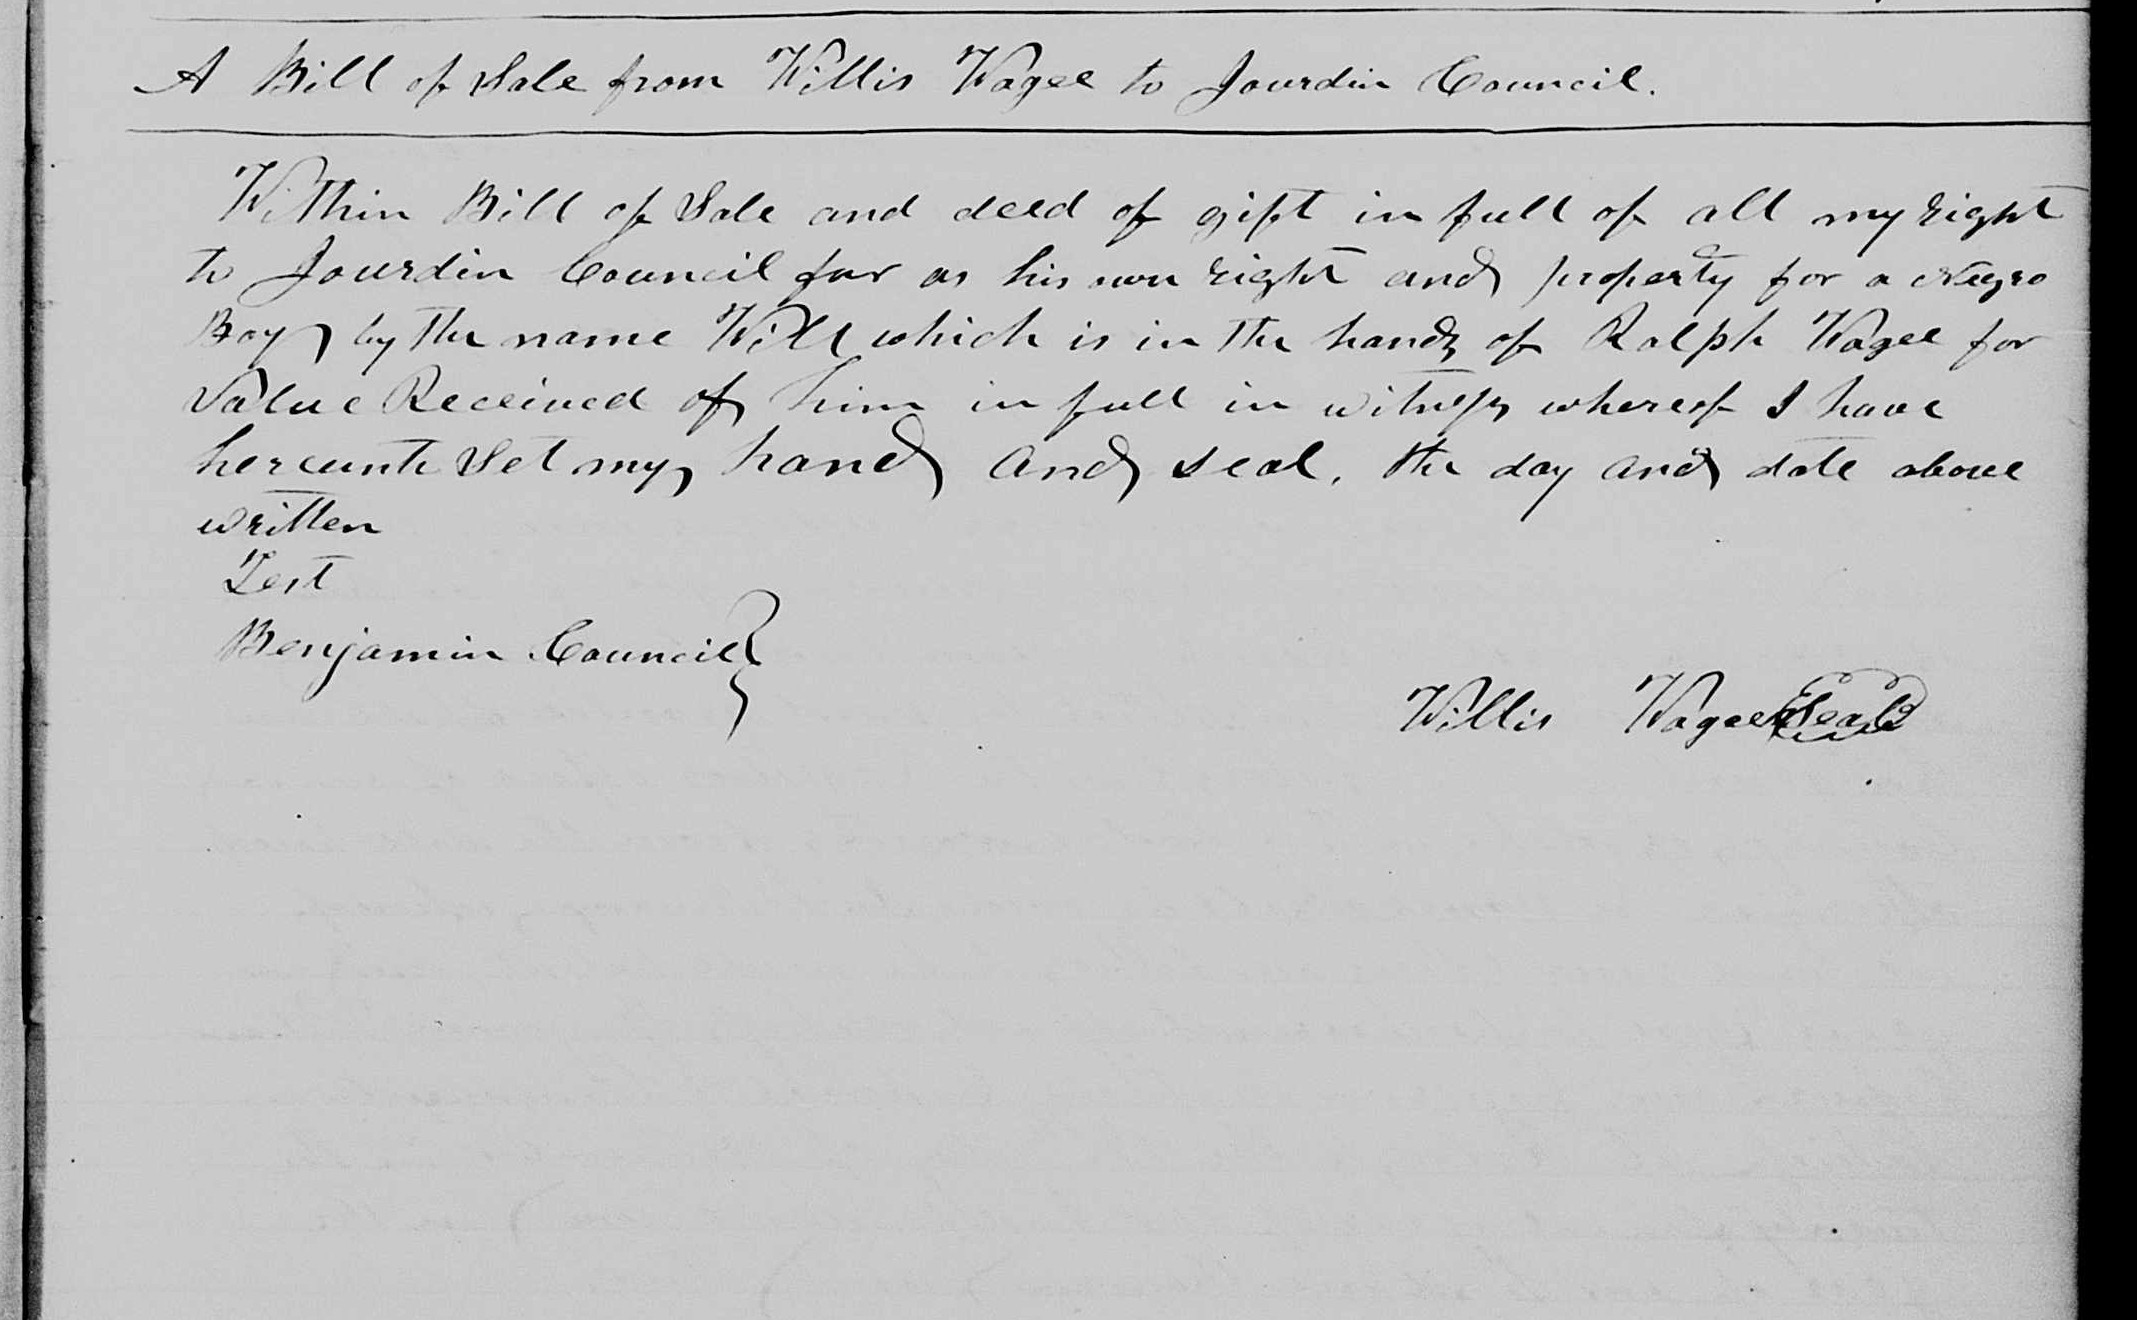 A Bill of Sale from Willis Wagee to Jourdin Council.
Within Bill of Sale and deed of gift in full of all my right
to Jourdin Council for as his own right and property for a Negro
Boy by the name Will which is in the hands of Ralph Wagee for
Value Received of him in full in witness whereof I have
hereunto Set my hand and seal, the day and date above
written
Test
Benjamin Council
Willis Wagee Seal